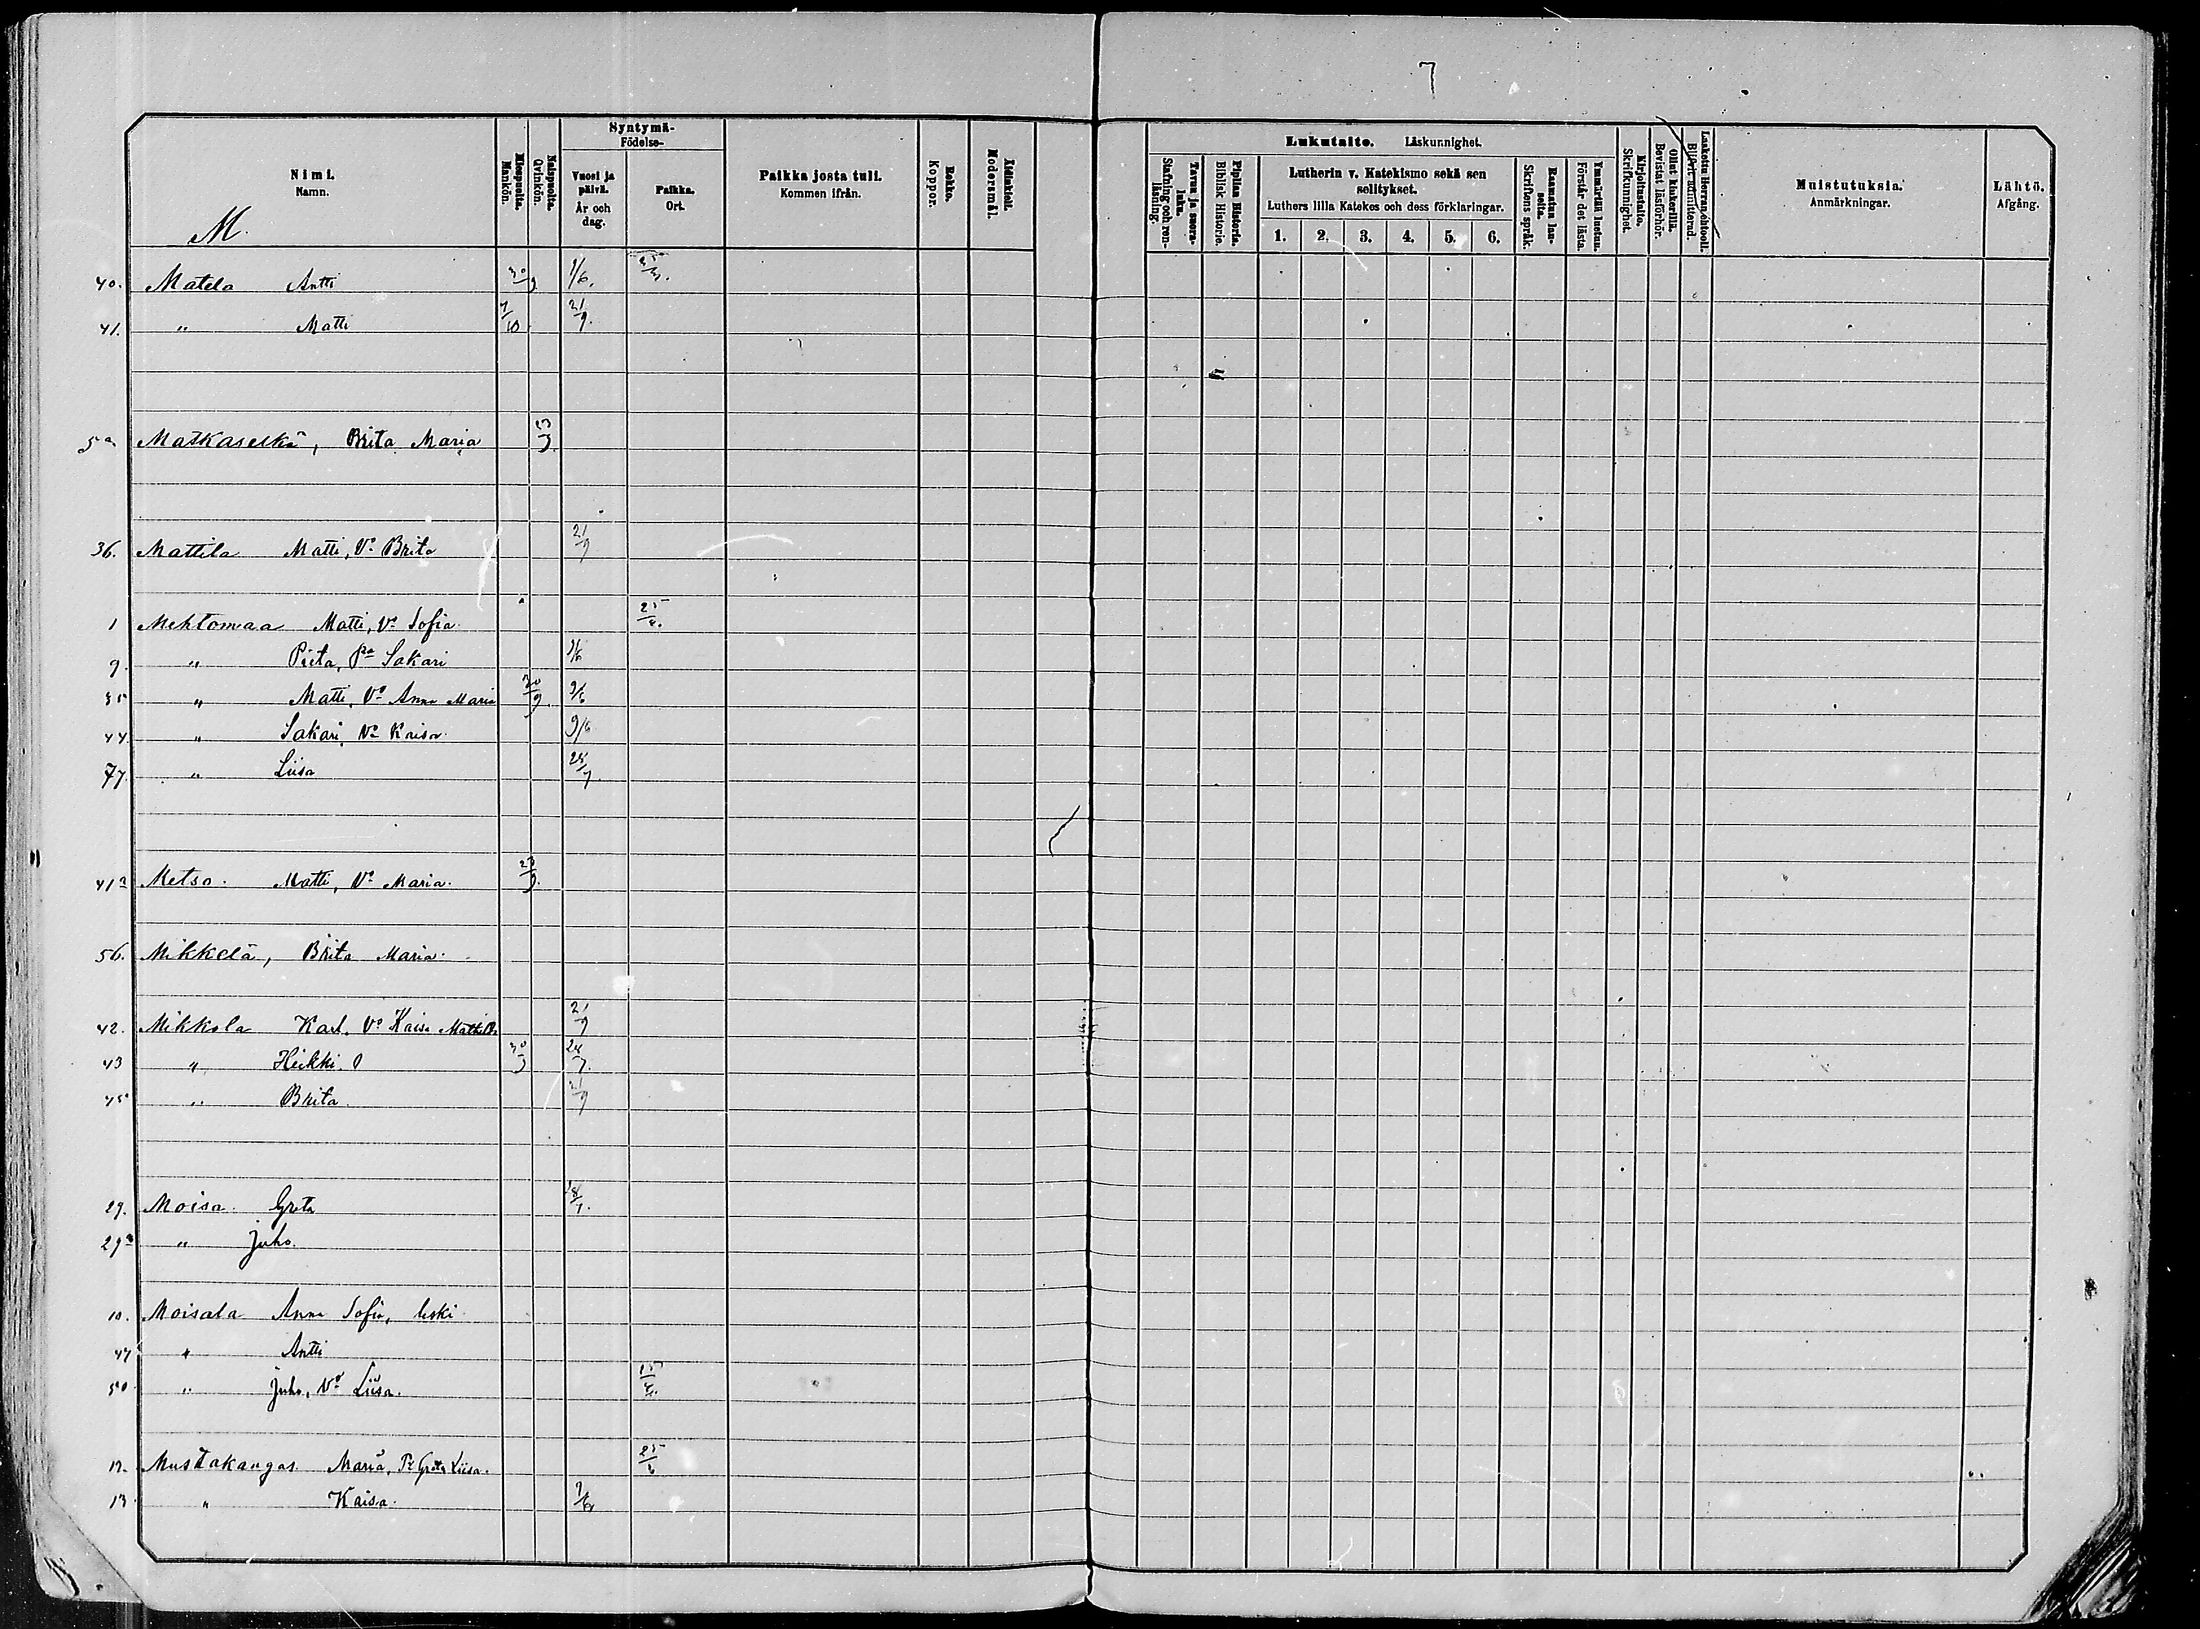 7
Nimi. Namn.
Miespuolta. Mankön.
Naispuolta. Qvinkön.
Syntymä- Födelse-
Vuosi ja päivä. År och dag.
Paikka. Ort.
Paikka josta tuli. Kommen ifrån.
Rokko. Koppor.
Äidinkieli. Modersmål.
Lukutaito. Läskunnighet.
Tavuu ja suora-luku. Stafning och ren-läsning.
Piplian Historia. Biblisk Historie.
Lutherin v. Katekismo sekä sen selitykset.
Luthers lilla Katekes och dess förklaringar.
1. 2. 3. 4. 5. 6.
Raamatun lau-seita. Skriftens språk.
Ymmärtää luetun. Förstår det lästa.
Kirjoitustaito. Skrifkunnighet.
Ollut kinkerillä. Bevistat läsförhör.
Laskettu Herran ehtooll. Blifvit admitterad.
Muistutuksia. Anmärkningar.
Lähtö. Afgång.
M.
40. Matela Antti 30/9 9/6.
41. " Matti 7/10 21/9.
5a Matkaselkä, Brita Maria
36. Mattila Matti, Vo Brita 21/9
1 Mehtomaa Matti, Vo Sofia 25/4.
9. " Pieta, Sakari 9/6
35 " Matti, Vo Anna Maria 30/9 9/6
44. " Sakari, Vo Kaisa 9/6
77. " Liisa
41a Metso. Matti, Vo Maria.
56. Mikkelä, Brita Maria.
42. Mikkola Karl, Vo Kaisa 21/9
43 " Heikki
45 " Brita. 21/9
29. Moisa Greta
29a " Juho.
10. Moisala Anna Sofia, leski
47 " Antti
50 " Juho, Vo Liisa. 15/4.
12. Mustakangas Maria, Greta Liisa. 25/6
13 " Kaisa.